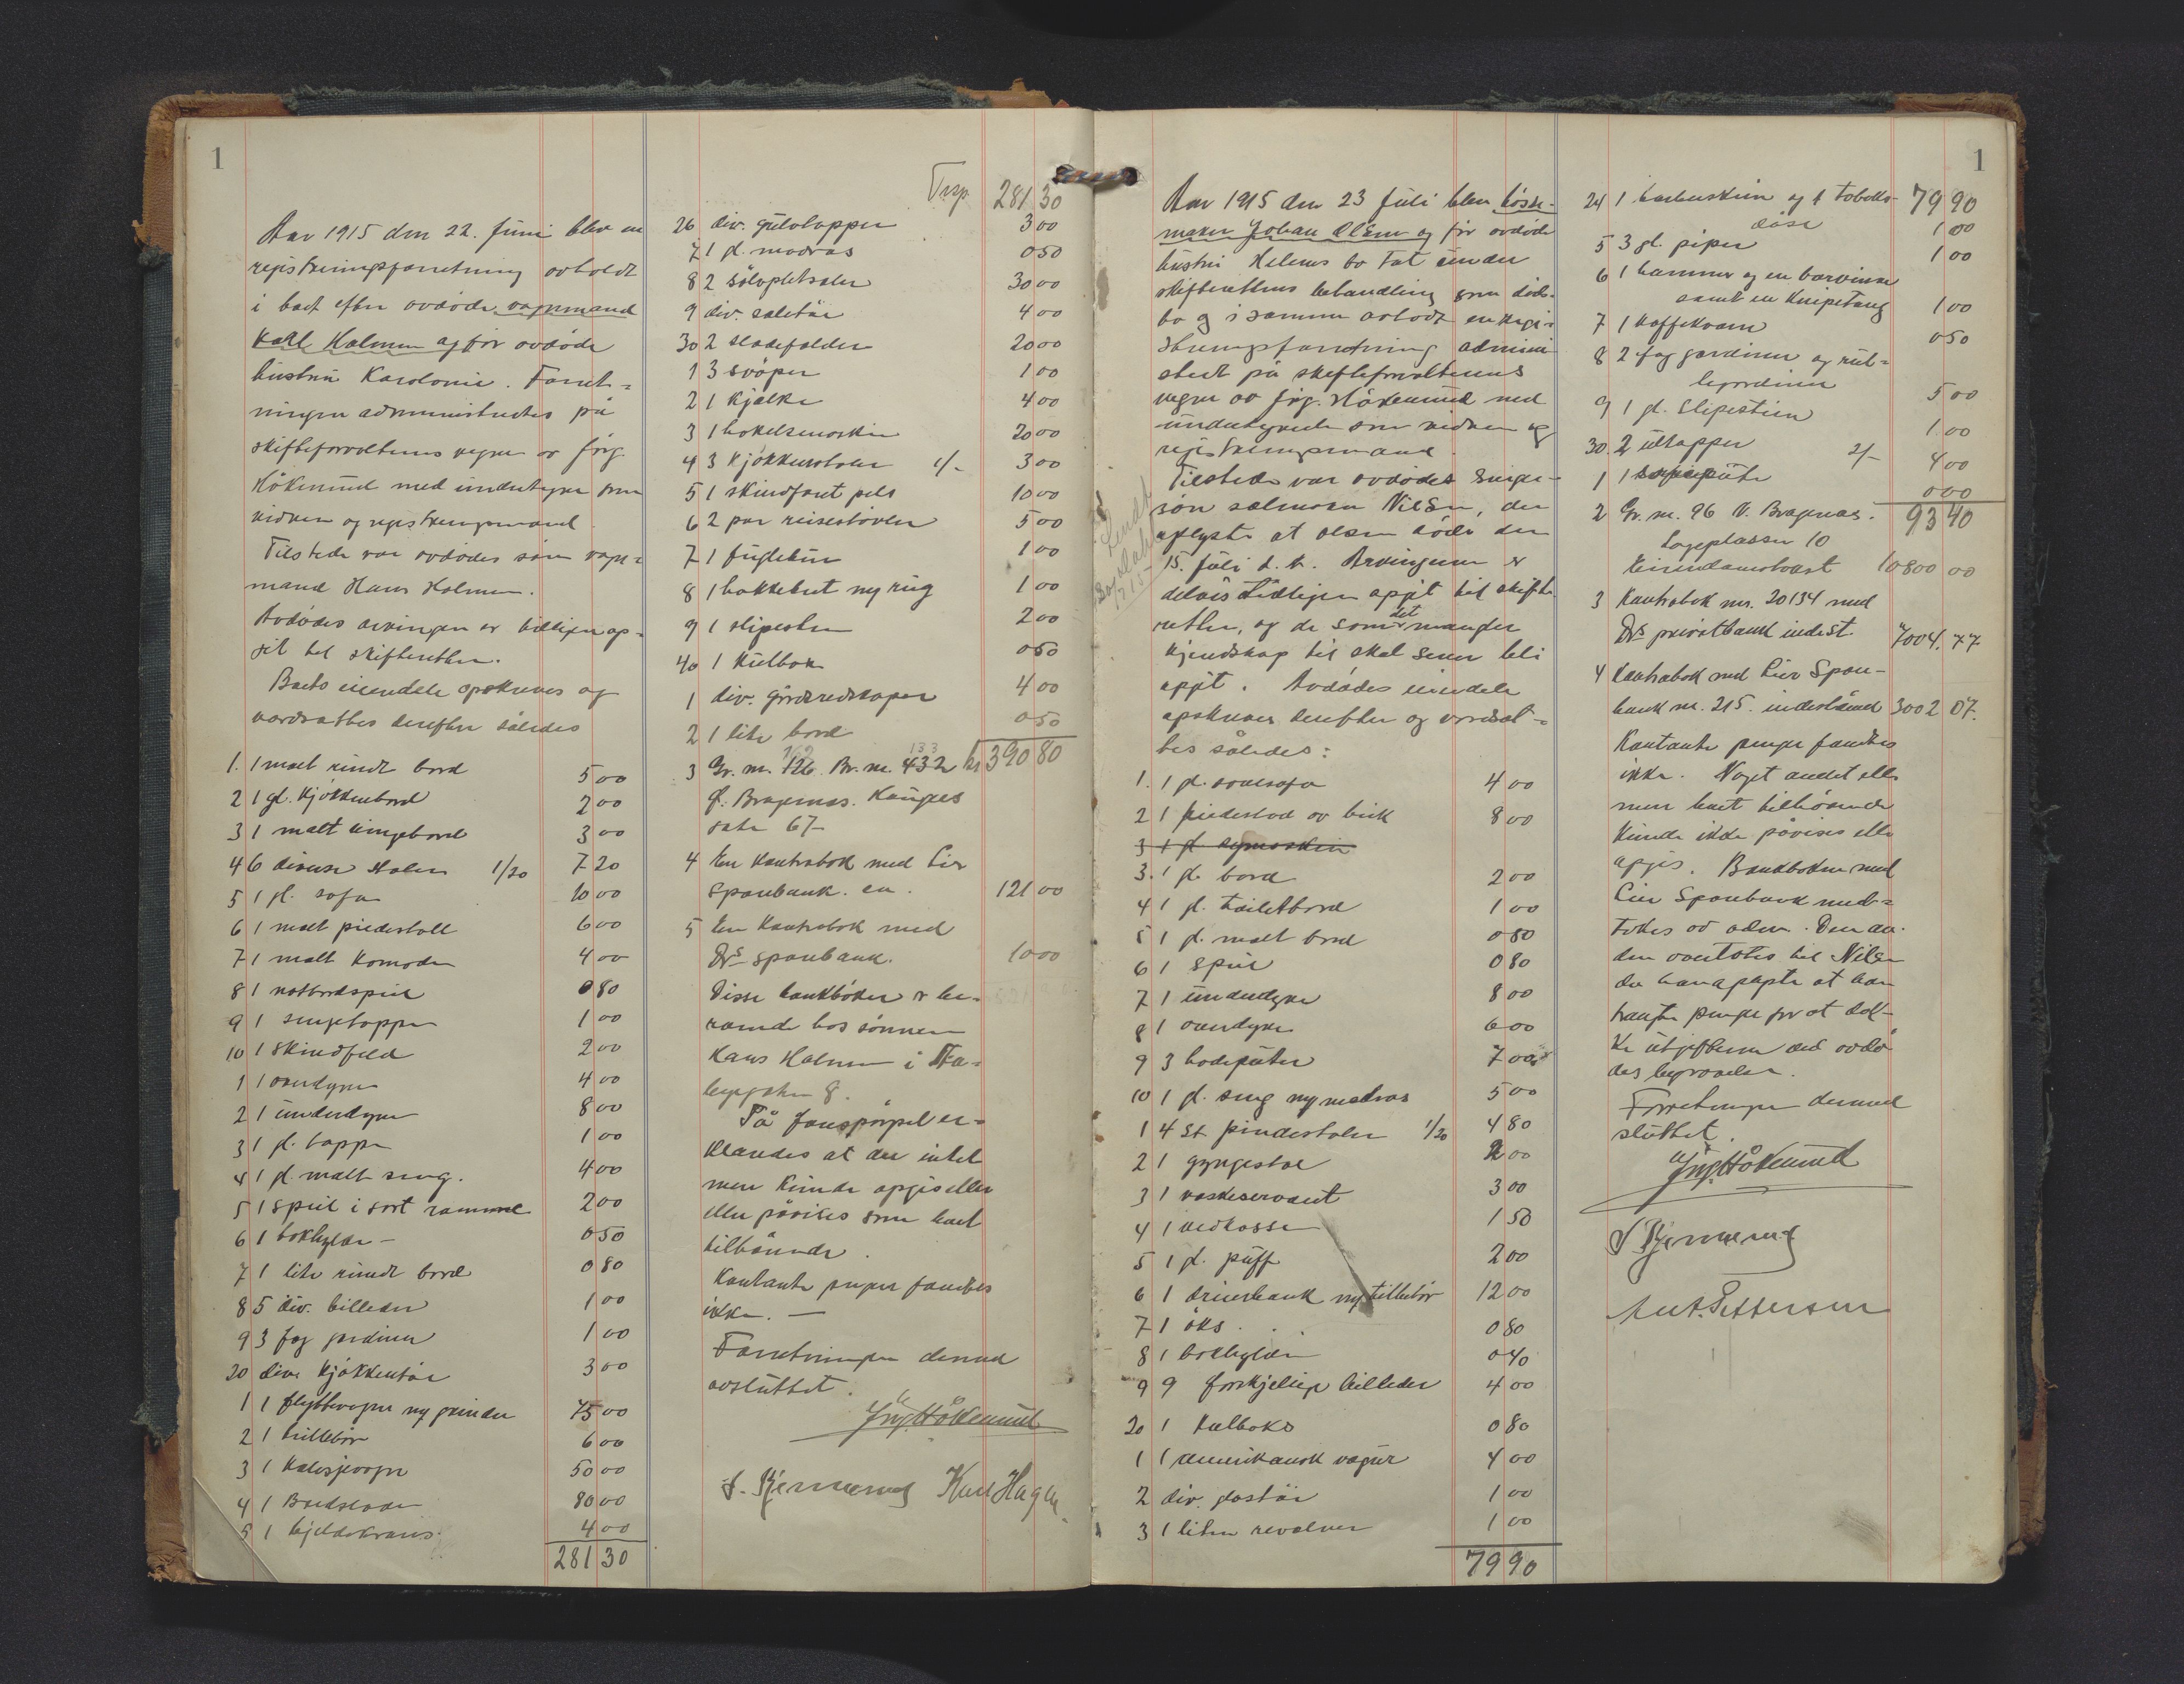 1
Aar 1915 den 22. Juni blev en
registreringsforretning avholdt
i boet efter avdøde vognmand
Karl Holmen og før avdøde
hustru Karolonie. Forret=
ningen administrertes på
skifteforvalterens vegne av Jørg.
Håkerud med undertegnede som
vidner og registreringsmænd.
Tilstede var avdødes søn vogn=
mand Hans Holmen.
Avdødes arvinger er tidligere op=
git til skifteretten.
Boets eiendele opskreves og
værdsattes derefter således
1. 1 malt rundt bord 5 00
2 1 gl. kjøkkenbord 2 00
3 1 malt slingebord 3 00
4 6 diverse stoler 1/20 7 20
5 1 gl. sofa 10 00
6 1 malt piedestall 6 00
7 1 malt komode 4 00
8 1 natbordspeil 0 80
9 1 sengetæppe 1 00
10 1 skindfeld 2 00
1 1 overdyne 4 00
2 1 underdyne 8 00
3 1 gl. tæppe 1 00
4 1 gl. malt seng. 4 00
5 1 speil i sort ramme 2 00
6 1 bokhylde - 0 50
7 1 lite rundt bord 0 80
8 5 div. billeder 1 00
9 3 fag gardiner 1 00
20 div. kjøkkentøi 3 00
1 1 flyttevogn m/ grinder 75 00
2 1 trillebør 6 00
3 1 kalesjevogn 50 00
4 1 Bredslæde 80 00
5 1 bjeldekrans. 4 00
281 30
Trsp. 281 30
26 div. gulvtæpper 3 00
7 1 gl. madras 0 50
8 2 sølvpletseler 30 00
9 div. seletøi 4 00
30 2 sledefelder 20 00
1 3 svøper 1 00
2 1 kjælke 4 00
3 1 hakelsmaskin 20 00
4 3 kjøkkenstoler 1/- 3 00
5 1 skindforet pels 10 00
6 2 par reisestøvler 5 00
7 1 fuglebur 1 00
8 1 hakkebret m/ 1 00
9 1 slipesten 2 00
40 1 kulboks 0 50
1 div. gårdsredskaper 4 00
2 1 lite bord 0 50
kr 390 80
3 Gr. nr. 126 162. Br. nr. 432 133
f. Bragernes. Kongens
gate 67-
4 En kontrabok med Lier
Sparebank. 121 00
5 En kontrabok med
Drs Sparebank. 10 00
Disse bankbøker er be=
roende hos sønnen
Hans Holmen i
8.
På forespørgsel er=
klæredes at der intet
mere kunde opgis eller
eller påvises som boet
tilhørende.
Kontante penger fandtes
ikke. —
Forretningen dermed
avsluttet.
Jørg. Håkerud
Karl Hagen
1
Aar 1915 den 23 Juli blev bøsse=
maker Johan Olsen og før avdøde
hustru Helenes bo tat under
skifterettens behandling som døds=
bo og i samme avholdt en regi=
streringsforretning admini=
stert på skifteforvalterens
vegne av Jørg. Håkerud med
undertegnede som vidner og
registreringsmænd.
Tilstede var avdødes sviger=
søn salmaker Nilsen, der
oplyste at Olsen døde den
15. juli d. å. Arvingerne er
delvis tidligere opgit til skifte
retten, og de som det mangler
kjendskap til skal senere bli
opgit. Avdødes eiendele
opskreves derefter og værdsat=
tes således:
1. 1 gl. sovesofa 4 00
2 1 piedestad av birk 8 00
3 1 gl. symaskin
3. 1 gl. bord 2 00
4 1 gl. toiletbord 1 00
5 1 gl. malt bord 0 80
6 1 speil 0 80
7 1 underdyne 8 00
8 1 overdyne 6 00
9 3 hodeputer 7 00
10 1 gl. seng m/ madras 5 00
1 4 st pindestoler 1/20 4 80
2 1 gyngestol 2 00
3 1 vaskeservant 3 00
4 1 vedkasse 1 50
5 1 gl. puff 2 00
6 1 dreierbænk m/ tilbehør 12 00
7 1 øks. 0 80
8 1 bokhylde 0 40
9 9 forskjellige billeder 4 00
20 1 kulboks 0 80
1 1 amerikansk vægur 4 00
2 div. glastøi 1 00
3 1 liten revolver 1 00
79 90
1
79 90
24 1 barbermaskin og 1 tobaks-
dåse 1 00
5 3 gl. piper 1 00
6 1 hammer og en borvinne
samt en knipetang 1 00
7 1 kaffekværn 0 50
8 2 fag gardiner og rul=
legardiner 5 00
9 1 gl. slipesten 1 00
30. 2 ultæpper 2/- 4 00
1 1 0 00
93 40
2 Gr. nr. 96 V. Bragernes.
Løgeplassen 10
Eiendomstakst 10800 00
3 Kontrabok nr. 20134 med
Drs privatbank indest. 7004.77
4 Kontrabok med Lier Spare-
bank nr. 215. indestående 3002 07.
Kontante penger fandtes
ikke. Noget andet eller
mere boet tilhørende
kunde ikke påvises eller
opgis. Bankboken med
Lier Sparebank med=
tokes av adm. Den an=
den overlotes til Nilsen
da han oplyste at han
trængte penger for at dæk-
ke utgifterne ved avdø
des begravelse.
Forretningen dermed
sluttet.
Jørg. Håkerud
Ant. Pettersen